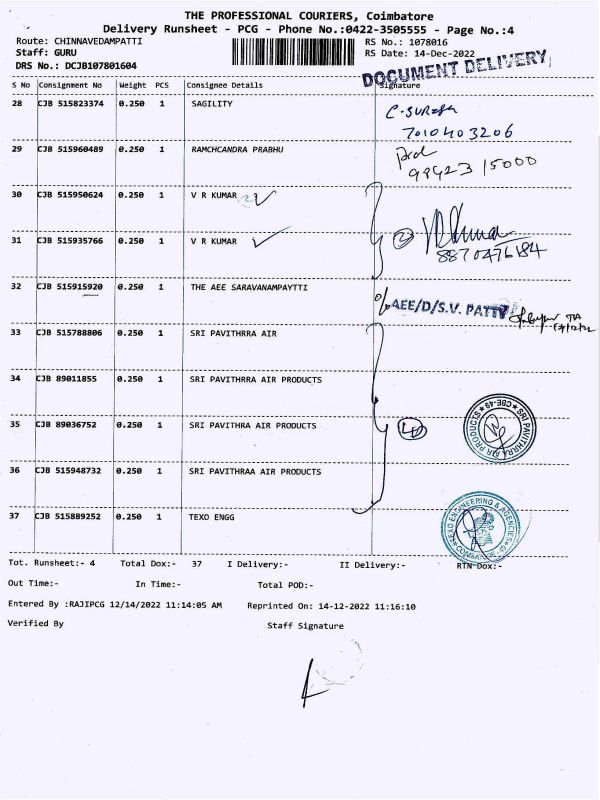 THE PROFESSIONAL COURIERS, Coimbatore
Delivery Runsheet - PCG - Phone No.:0422-3505555 - Page No.:4
Route: CHINNAVEDAMPATTI RS No.: 1078016
Staff: GURU RS Date: 14-Dec-2022
DRS No.: DCJB107801604
DOCUMENT DELIVERY
S No Consignment No Weight PCS Consignee Details Signature
28 CJB 515823374 0.250 1 SAGILITY
7010403206
29 CJB 515960489 0.250 1 RAMCHCANDRA PRABHU
99423 15000
30 CJB 515950624 0.250 1 V R KUMAR
31 CJB 515935766 0.250 1 V R KUMAR 2
32 CJB 515915920 0.250 1 THE AEE SARAVANAMPAYTTI
AEE/D/S.V. PATTY
33 CJB 515788806 0.250 1 SRI PAVITHRRA AIR
34 CJB 89011855 0.250 1 SRI PAVITHRRA AIR PRODUCTS
35 CJB 89036752 0.250 1 SRI PAVITHRA AIR PRODUCTS 4
SRI PAVITHRRA AIR PRODUCTS CBE-49
36 CJB 515948732 0.250 1 SRI PAVITHRAA AIR PRODUCTS
37 CJB 515889252 0.250 1 TEXO ENGG
TEXO ENGINEERING & AGENCIES
Tot. Runsheet:- 4 Total Dox:- 37 I Delivery:- II Delivery:- RTN Dox:-
Out Time:- In Time:- Total POD:-
Entered By :RAJIPCG 12/14/2022 11:14:05 AM Reprinted On: 14-12-2022 11:16:10
Verified By Staff Signature